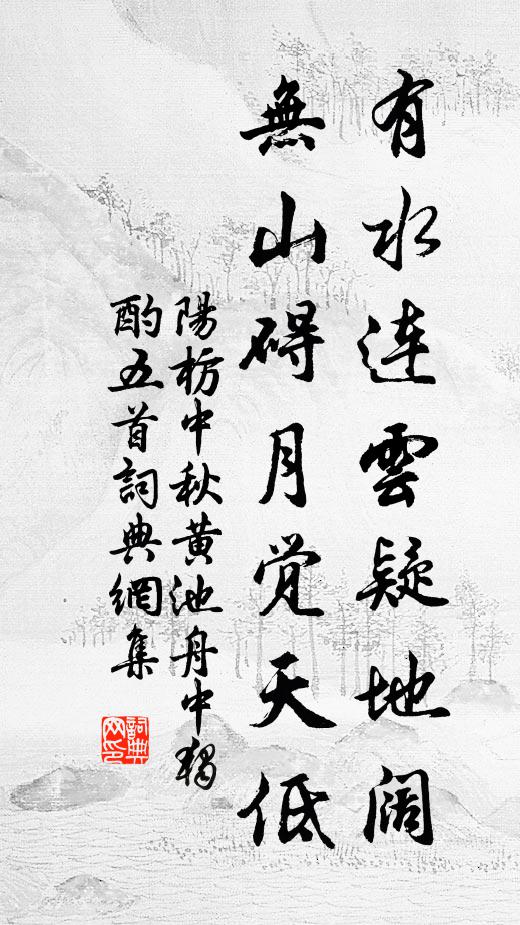 有水连雲疑地阔
無山碍月觉天低
陽枋中秋黄池舟中独
酌五首詞典網集
詞典
网印